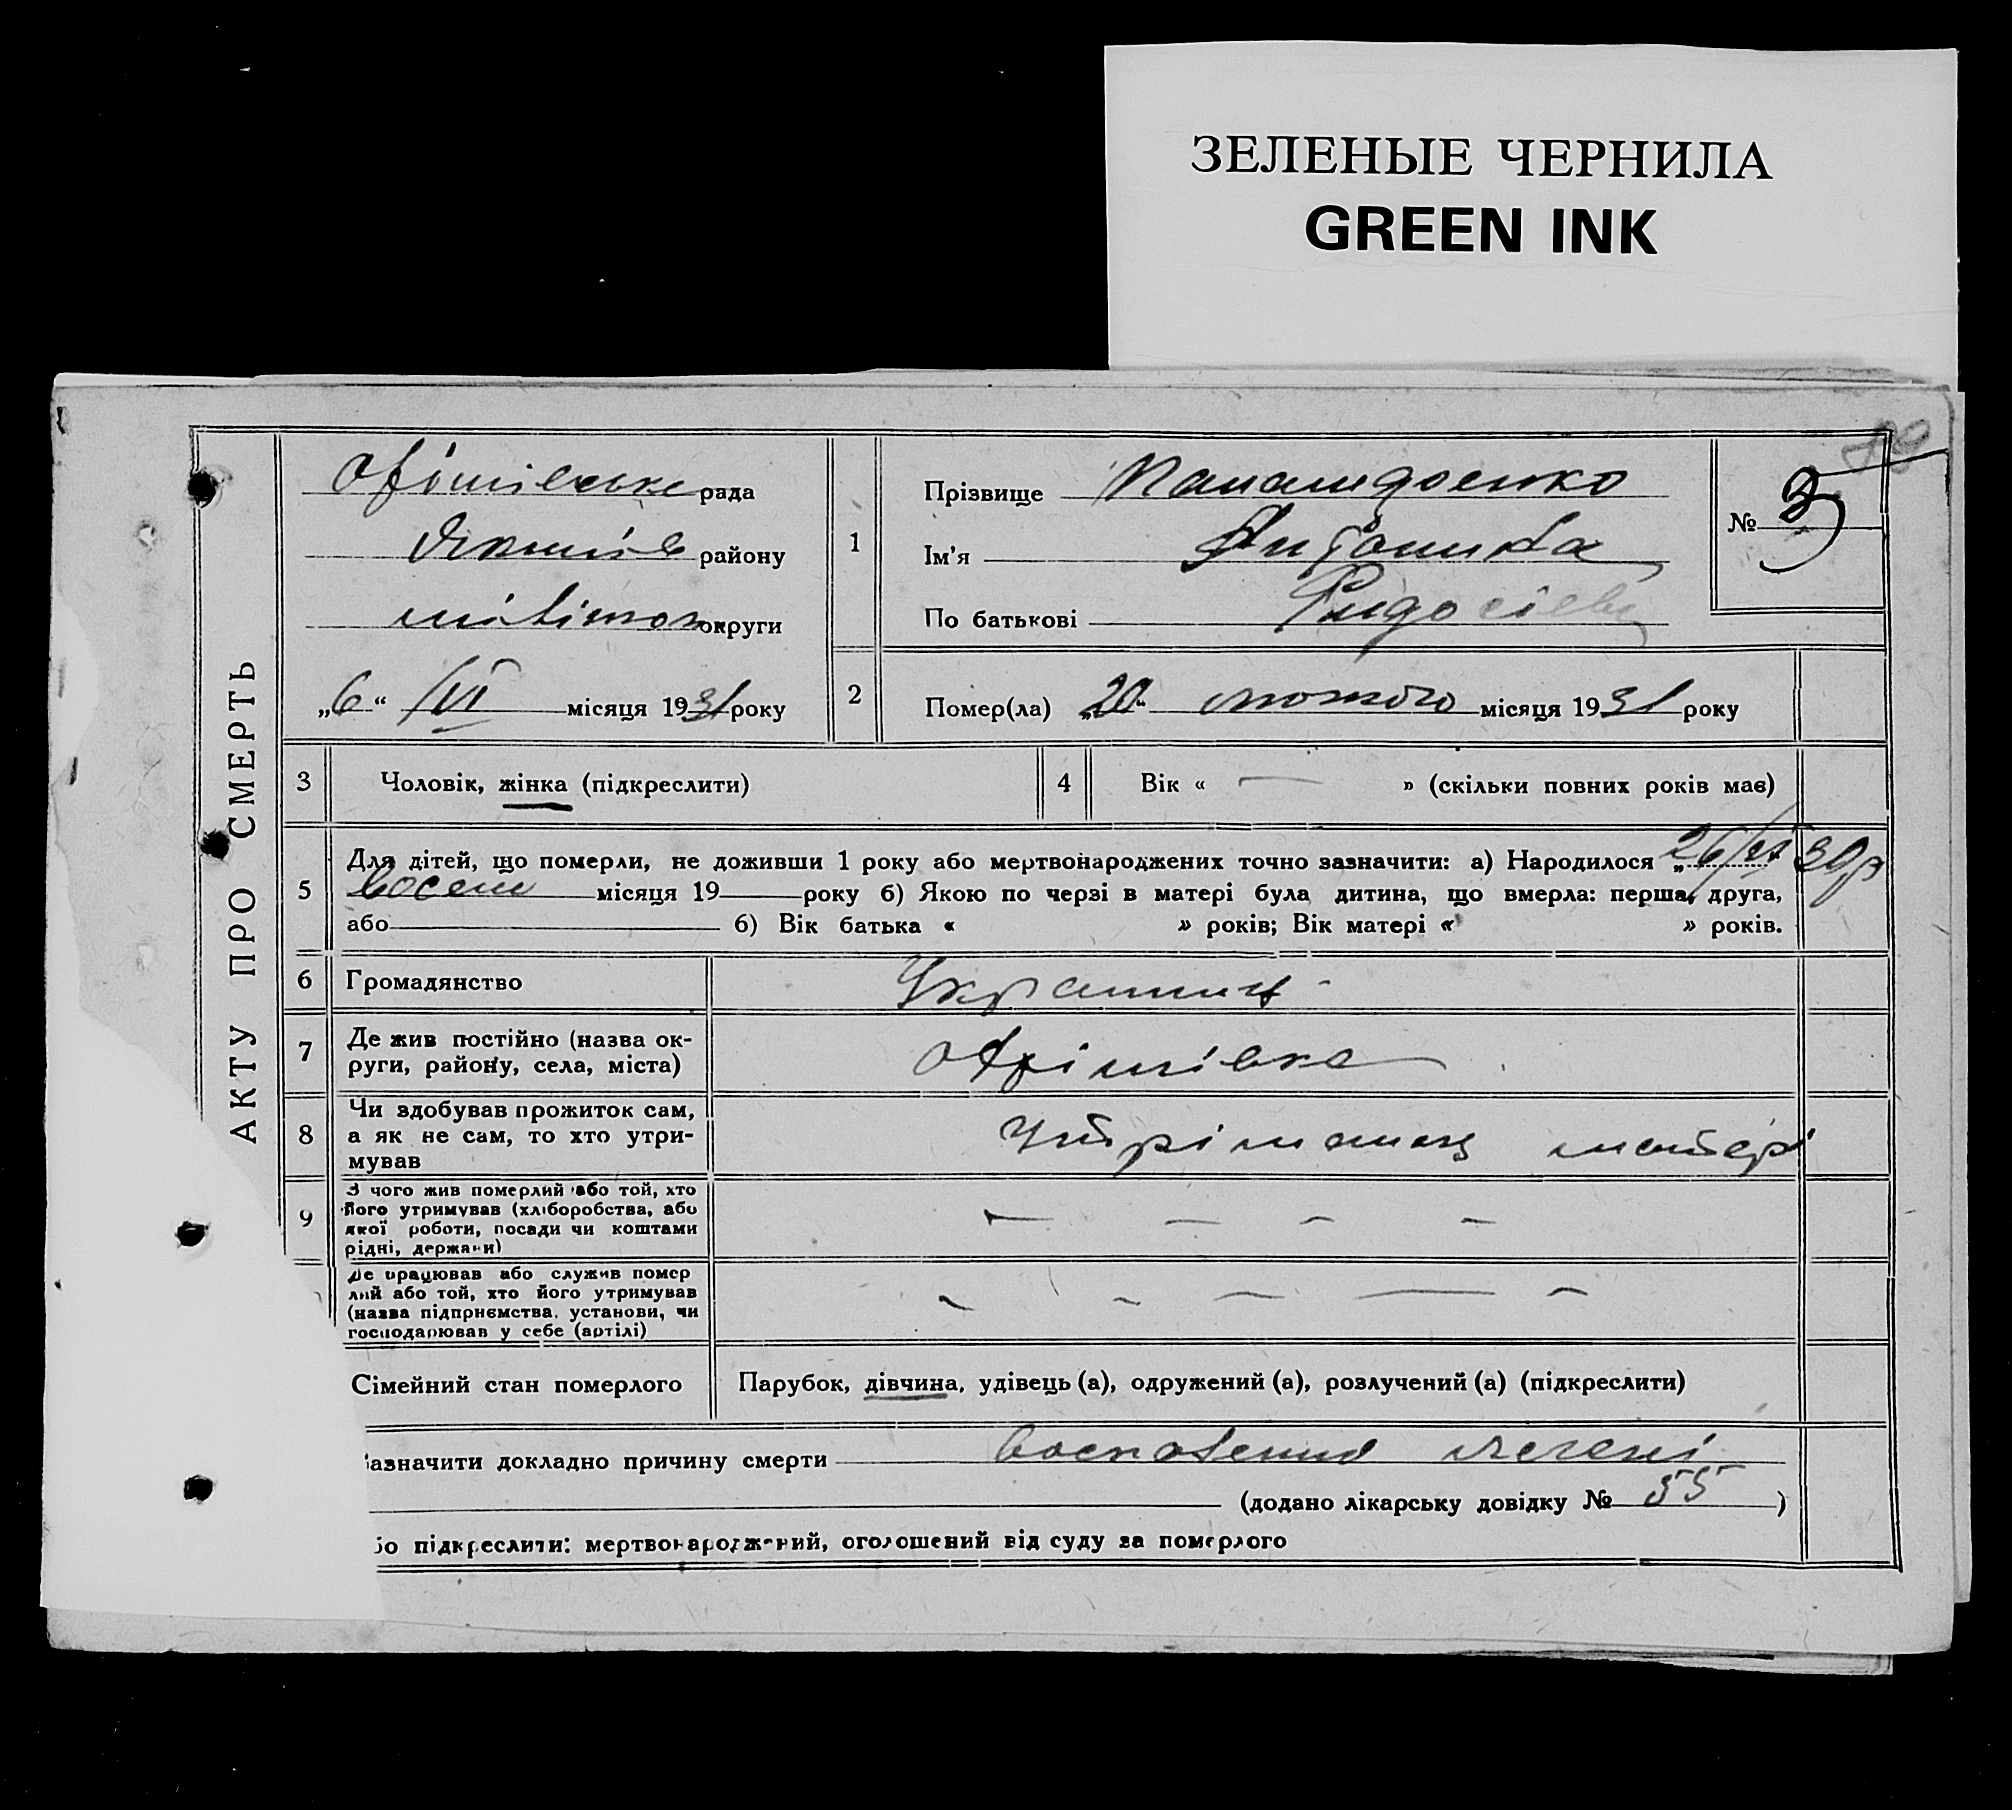 ЗЕЛЕНЫЕ ЧЕРНИЛА
GREEN INK
АКТУ ПРО СМЕРТЬ
рада
району
округи
„6“ /VI місяця 1931 року
1
Прізвище
Ім'я Антонина
По батькові
№ 3
2
Помер(ла) „20“ лютого місяця 1931 року
3
Чоловік, жінка (підкреслити)
4
Вік « — » (скільки повних років має)
5
Для дітей, що померли, не доживши 1 року або мертвонароджених точно зазначити: а) Народилося „26/ 30р
місяця 19 року б) Якою по черзі в матері була дитина, що вмерла: перша, друга,
або б) Вік батька « » років; Вік матері « » років.
6
Громадянство
7
Де жив постійно (назва ок-
руги, району, села, міста)
8
Чи здобував прожиток сам,
а як не сам, то хто утри-
мував
матері
9
З чого жив померлий або той, хто
його утримував (хліборобства, або
якої роботи, посади чи коштами
рідні, держави)
— — — —
Де працював або служив помер
лий або той, хто його утримував
(назва підприємства, установи, чи
господарював у себе (артілі)
— — — — —
Сімейний стан померлого
Парубок, дівчина, удівець (а), одружений (а), розлучений (а) (підкреслити)
азначити докладно причину смерти
(додано лікарську довідку № 55 )
бо підкреслити: мертвонароджений, оголошений від суду за померлого